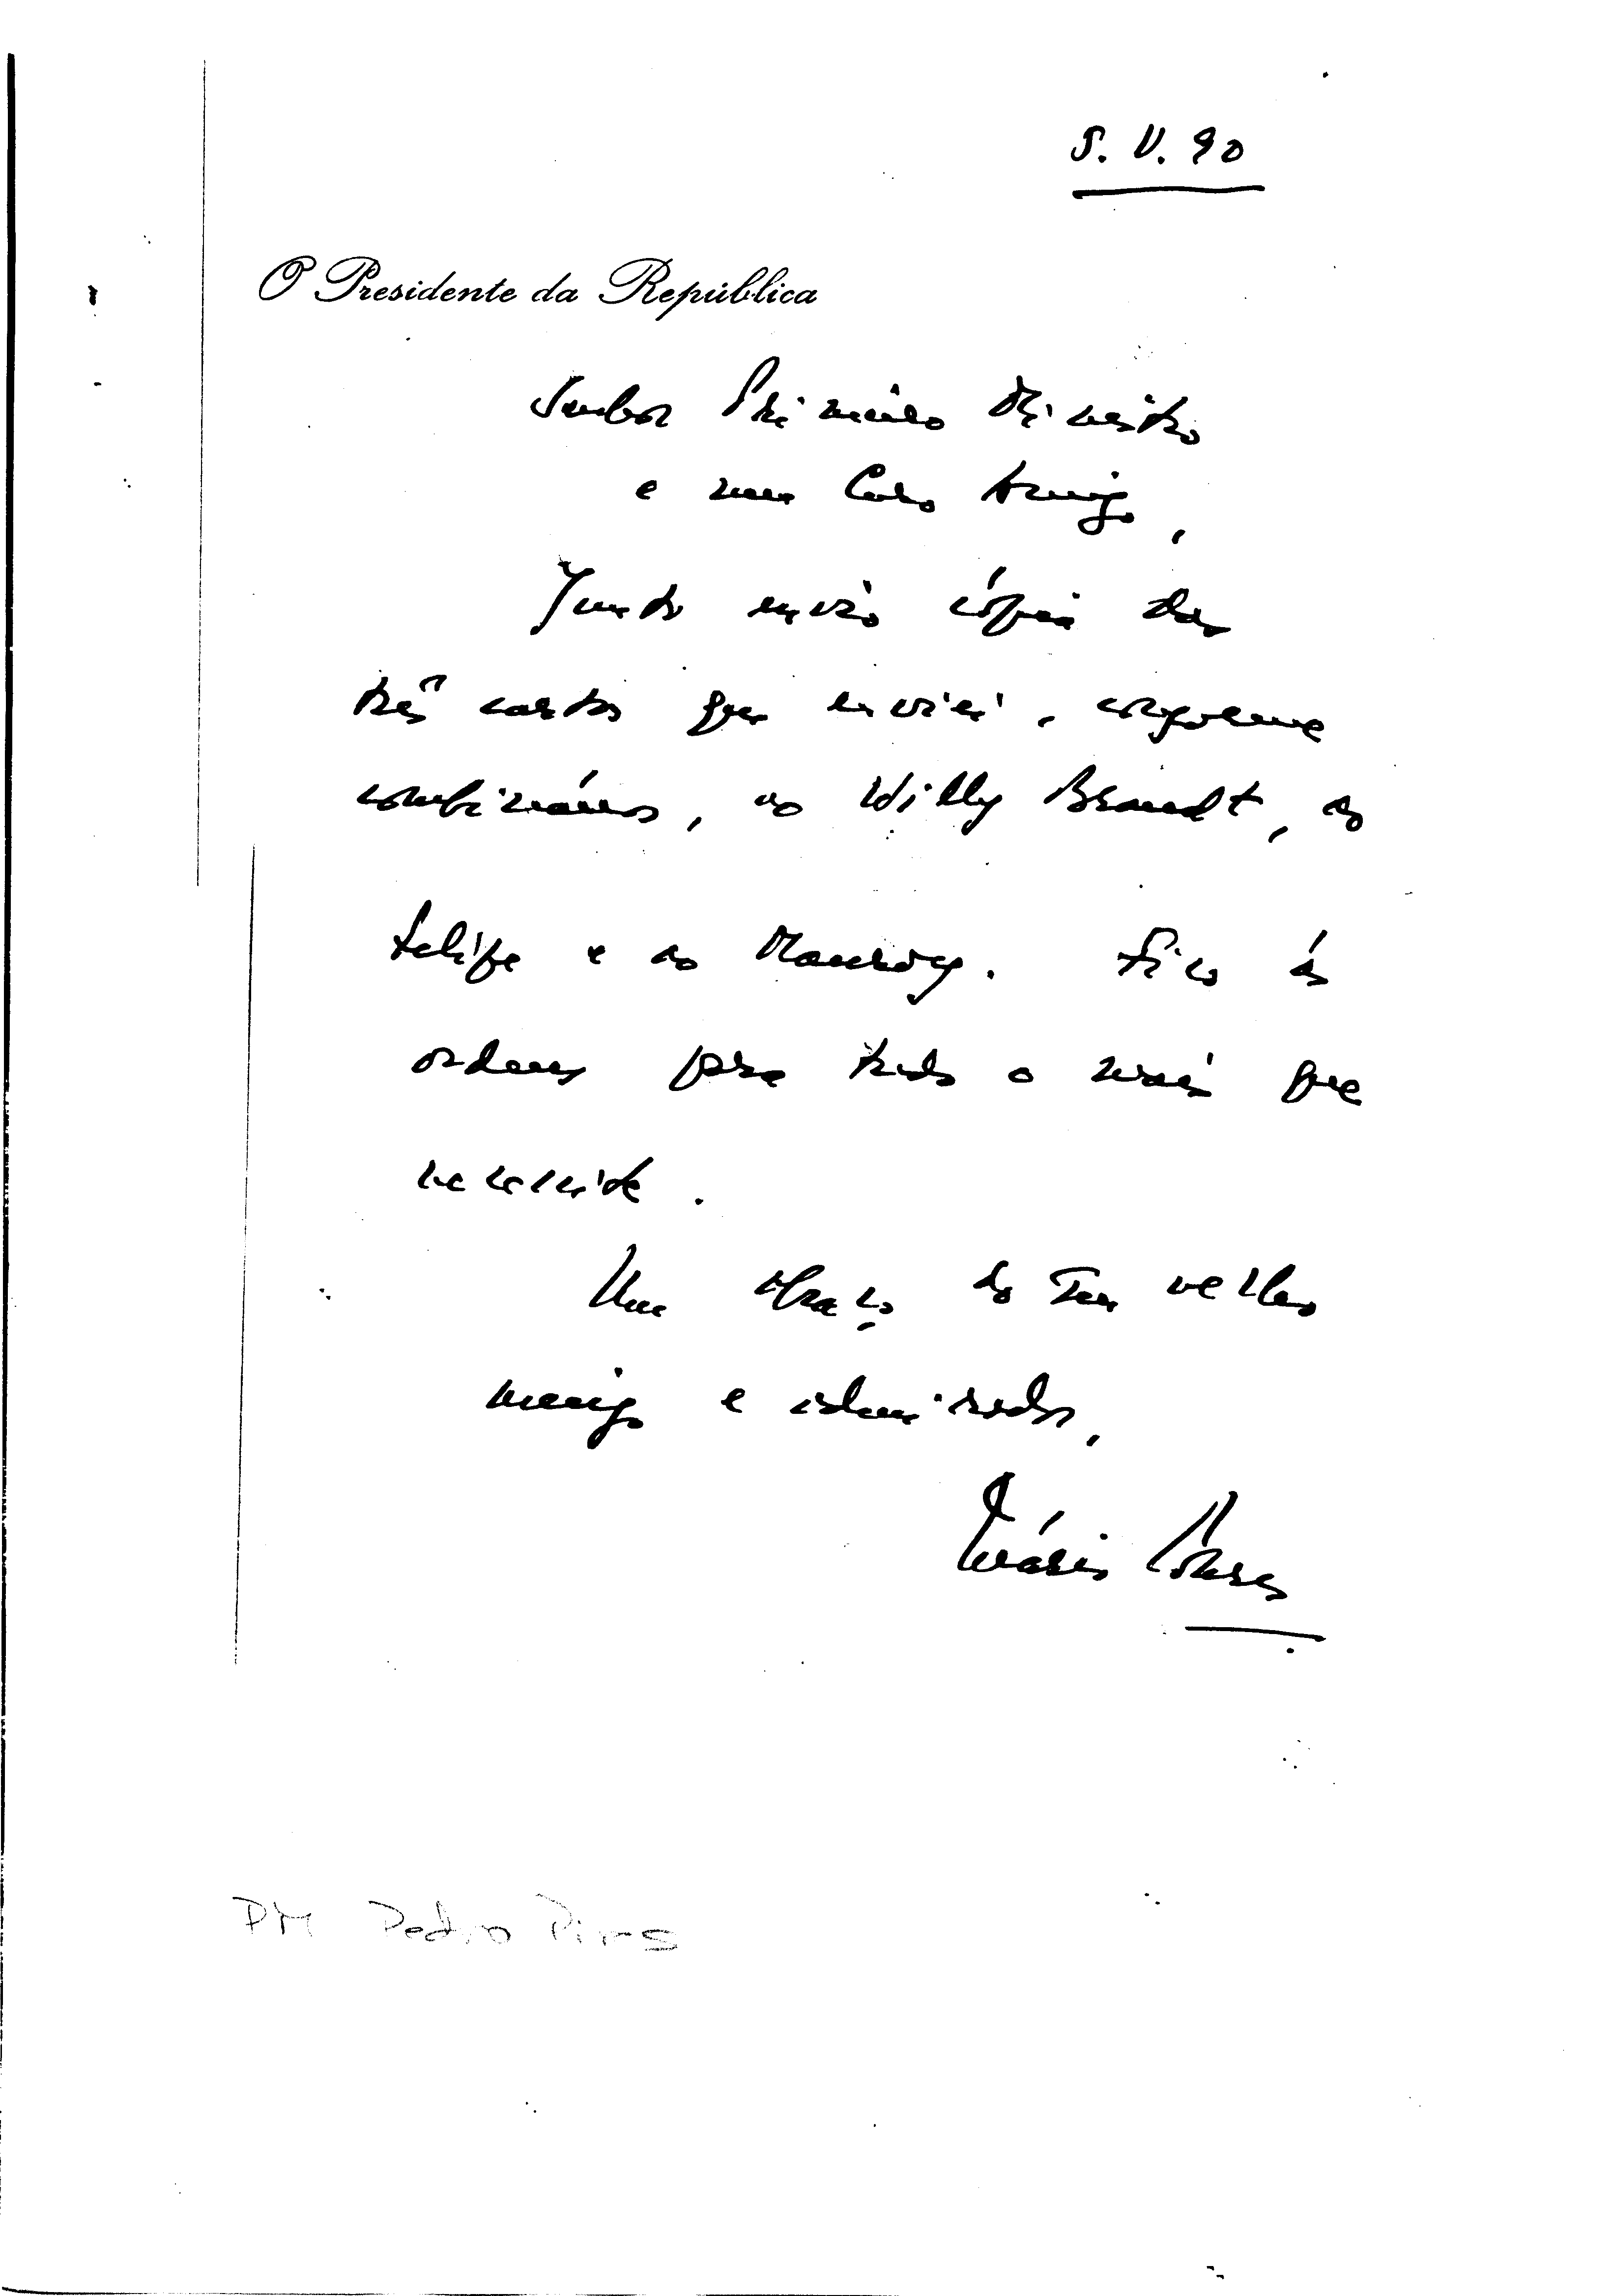 5. V. 90
O Presidente da República
Senhor Primeiro Ministro
e meu Caro Amigo,
Junto envio cópia das
três cartas que enviei, conforme
combinámos, ao Willy Brandt, ao
Felipe e ao Mauroy. Fico às
ordens para tudo o mais que
necessite.
Um abraço do seu velho
amigo e admirador,
Mário Soares
PM Pedro Pires